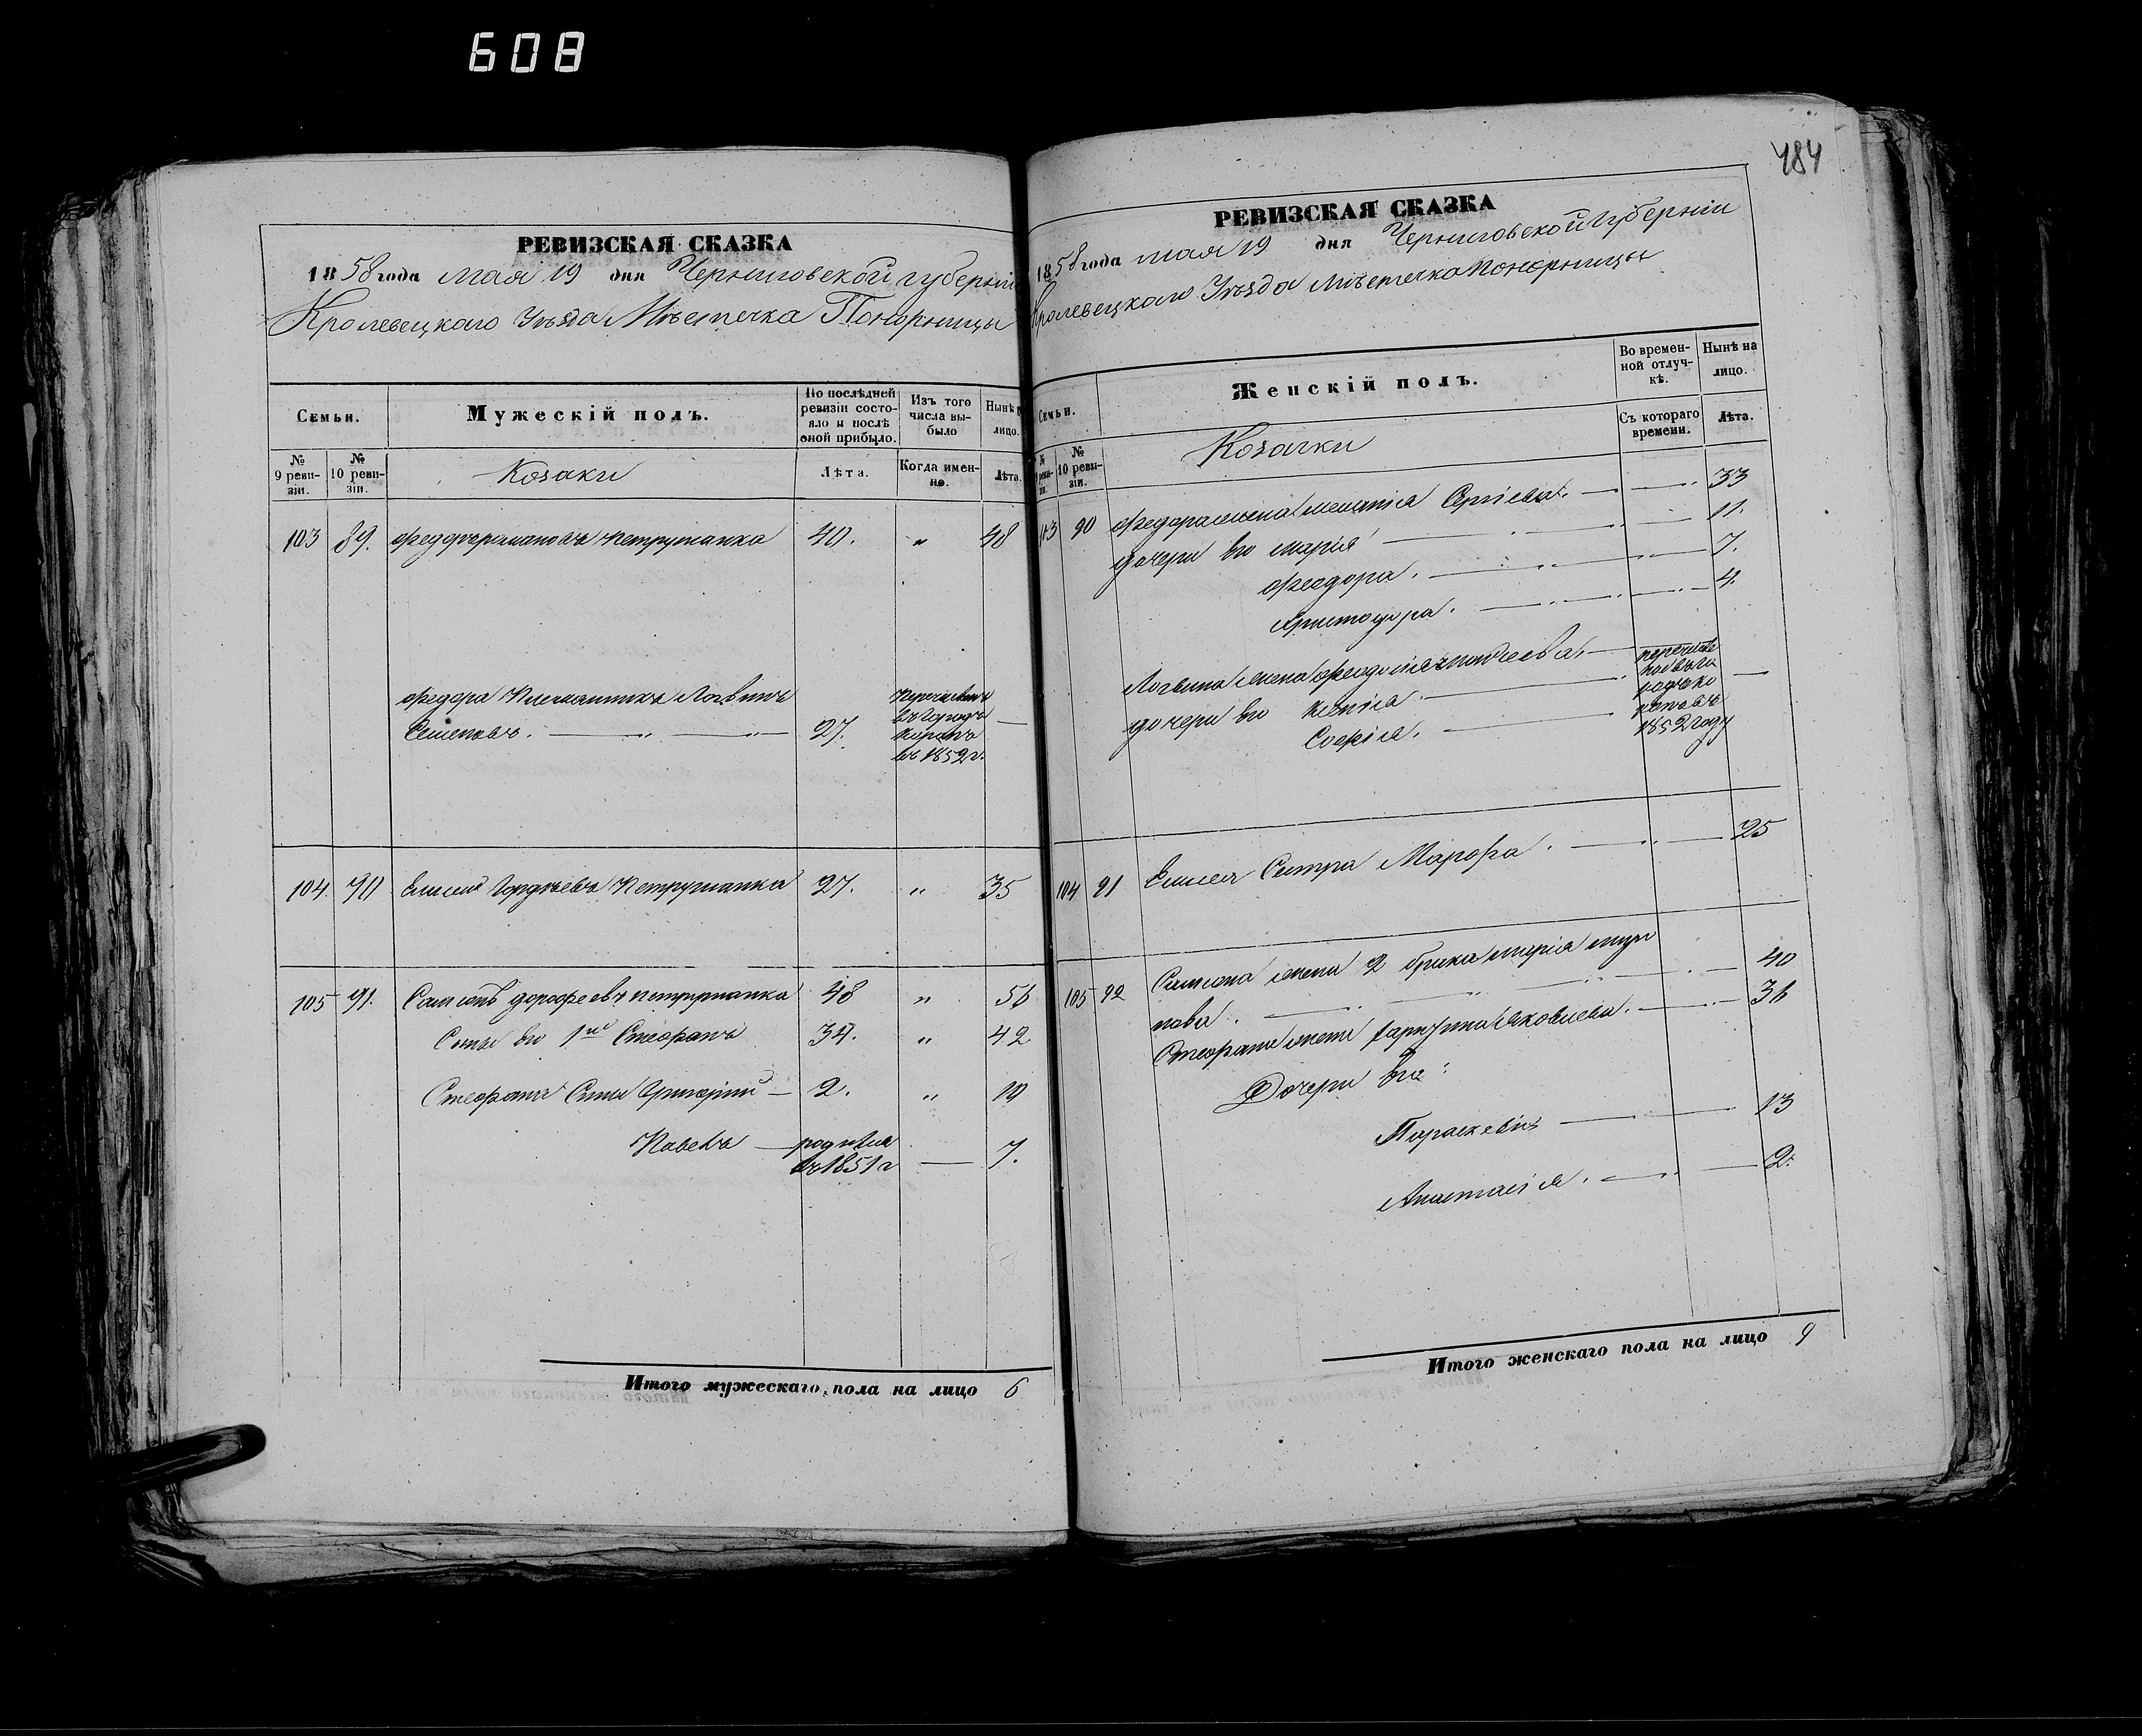 608
484
РЕВИЗСКАЯ СКАЗКА
1858 года мая 19 дня Черниговской губерніи
Кролевецкаго Уѣзда Мѣстечка Понорницы
Семьи.
Мужескій полъ.
По послѣдней ревизіи состояло и послѣ оной прибыло.
Изъ того числа выбыло
Нынѣ лицо.
№ 9 ревизіи.
№ 10 ревизіи.
Козаки
Лѣта.
Когда именно.
Лѣта.
103 89. Федоръ Романовъ Петрушанко 40. " 48
Федора Племянникъ Логвинъ
Семеновъ. 27. перечисленъ въ Городъ Коропъ въ 1852 г.
104. 90 Елисей Гордѣевъ Петрушанко 27. " 35
105 91. Самсонъ Дорофеевъ Петрушанко 48 " 56
Сыны его 1й Стефанъ 34. " 42
Стефана Сыны Григорій 2. " 10
Павелъ родился въ 1851 г 7.
Итого мужескаго пола на лицо 6
РЕВИЗСКАЯ СКАЗКА
1858 года мая 19 дня Черниговской Губерніи
Кролевецкаго Уѣзда Мѣстечка Понорницы
Семьи.
Женскій полъ.
Во временной отлучкѣ.
Нынѣ на лицо.
№ 10 ревизіи.
Козачки
Съ котораго времени.
Лѣта.
103 90 Федора жена Меланія Сергіева. 33
дочери его Марія 11.
Феодора. 7.
Христодора. 4.
Логвина жена Феодосія
дочери его Ксенія
Софія.
1852 году
104 91 Елисея Сестра Марфа. 25
105 92 Самсона жена 2 брака Марія
пова. 40
Стефана жена Яковлева. 36
Дочери его:
Параскевія 13
Анастасія. 2.
Итого женскаго пола на лицо 9